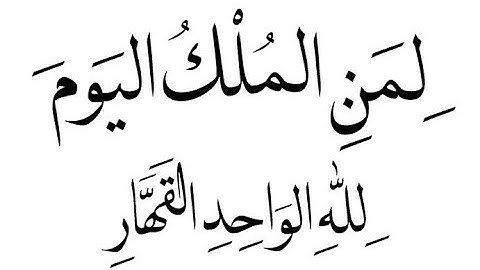 لِمَنِ الْمُلْكُ الیَومَ
لِلّٰهِ الوَاحِدِ القَهَّارِ